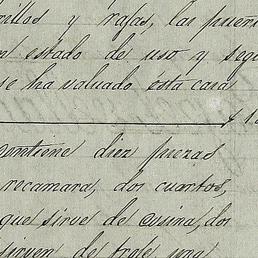 nillos y rajas, las puer
n estado de uso y segu
se ha valuado esta casa
$ 1
contiene diez piezas
recamara, dos cuartos,
que sirve de cosina, dos
sirven de troje, una